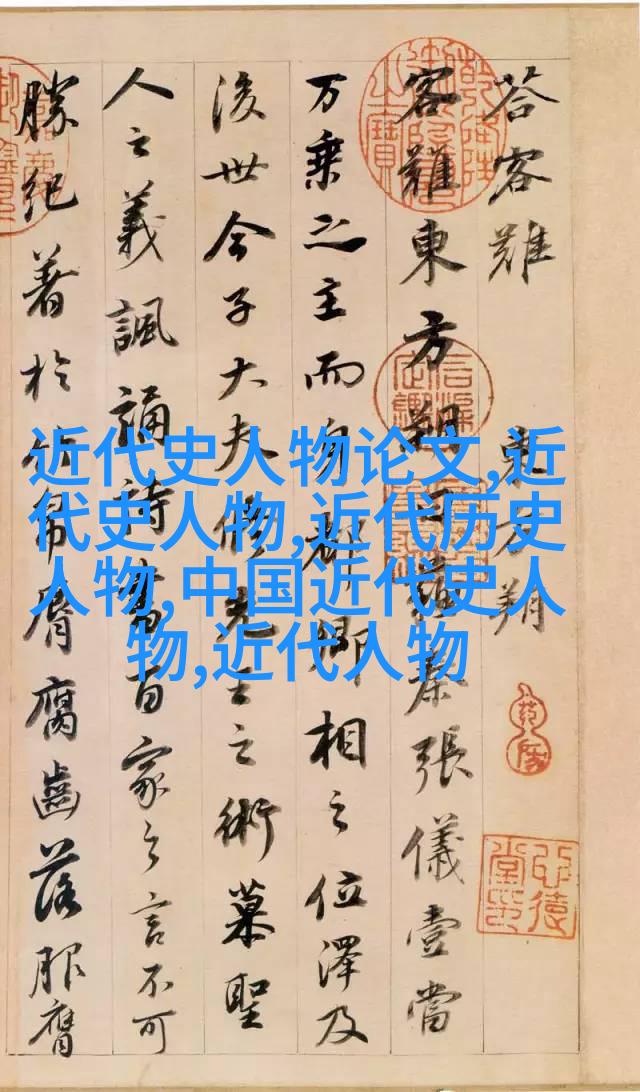 荅客難 東方朔
客難東方朔曰蘇秦張儀壹當
万乘之主而身都卿相之位澤及
後世今子大夫修先王之術慕聖
人之義諷誦詩書百家之言不可
勝紀著於竹帛脣腐齒落服膺
近代史人物论文,近
代史人物,近代历史
人物,中国近代史人
物,近代人物